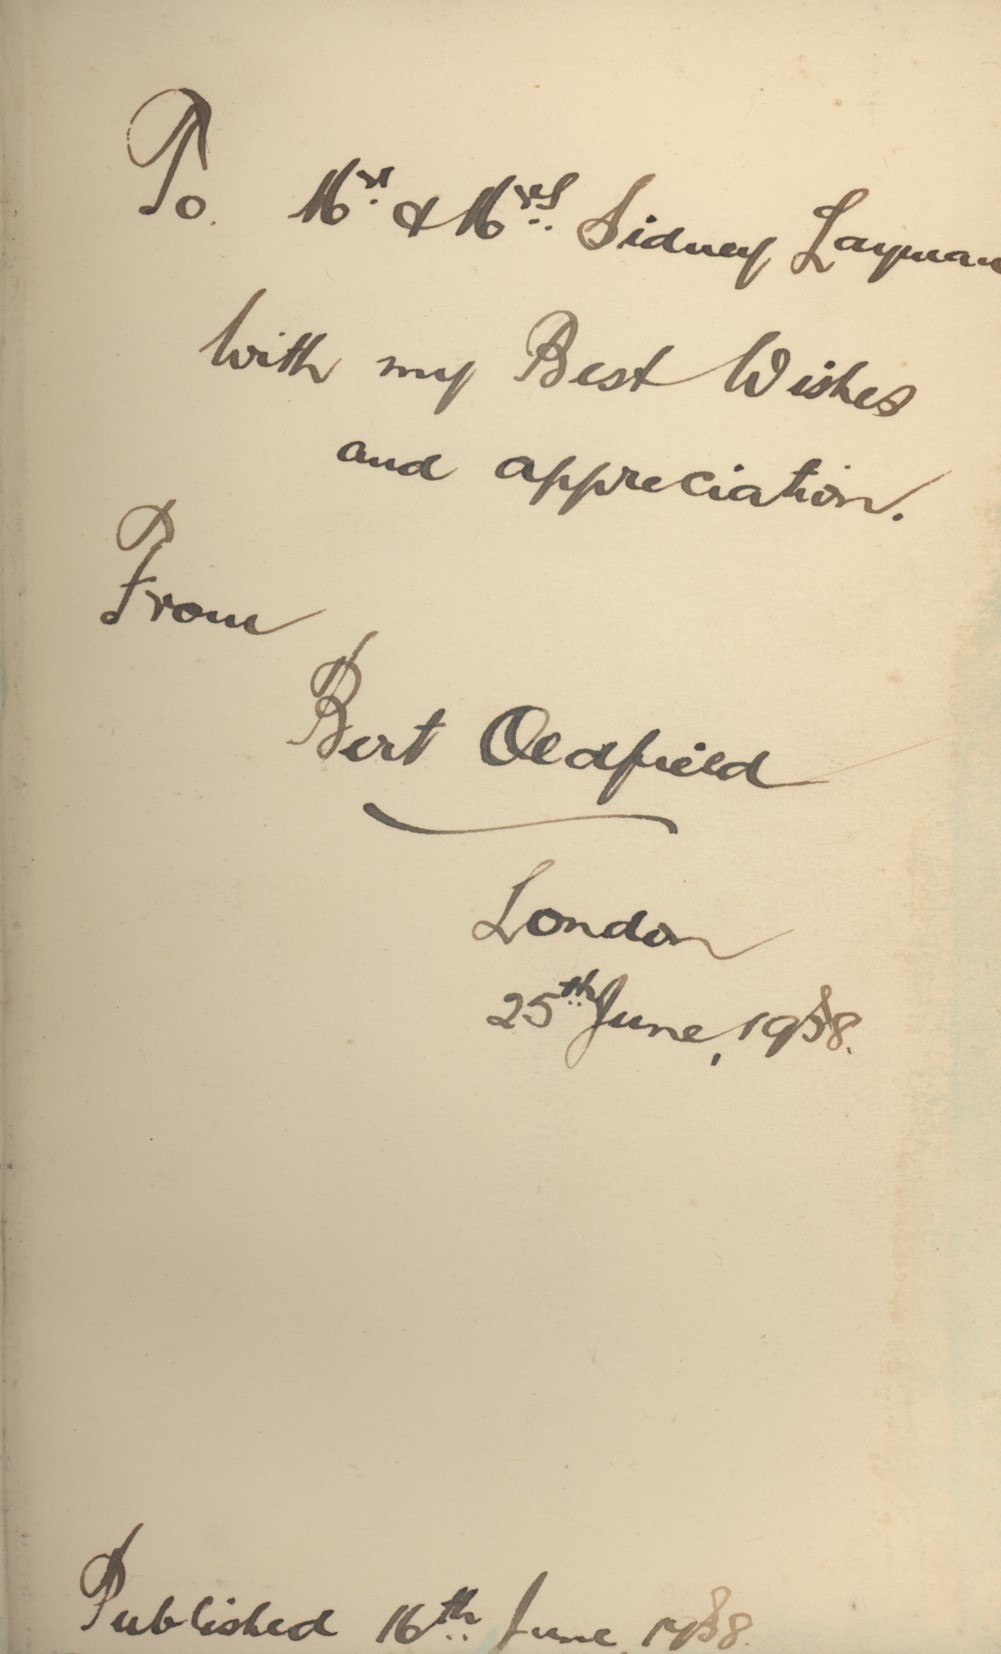 To. Mr. & Mrs. Sidney Layman
With my Best Wishes
and appreciation.
From
Bert Oldfield
London
25th June, 1938.
Published 16th June, 1938.